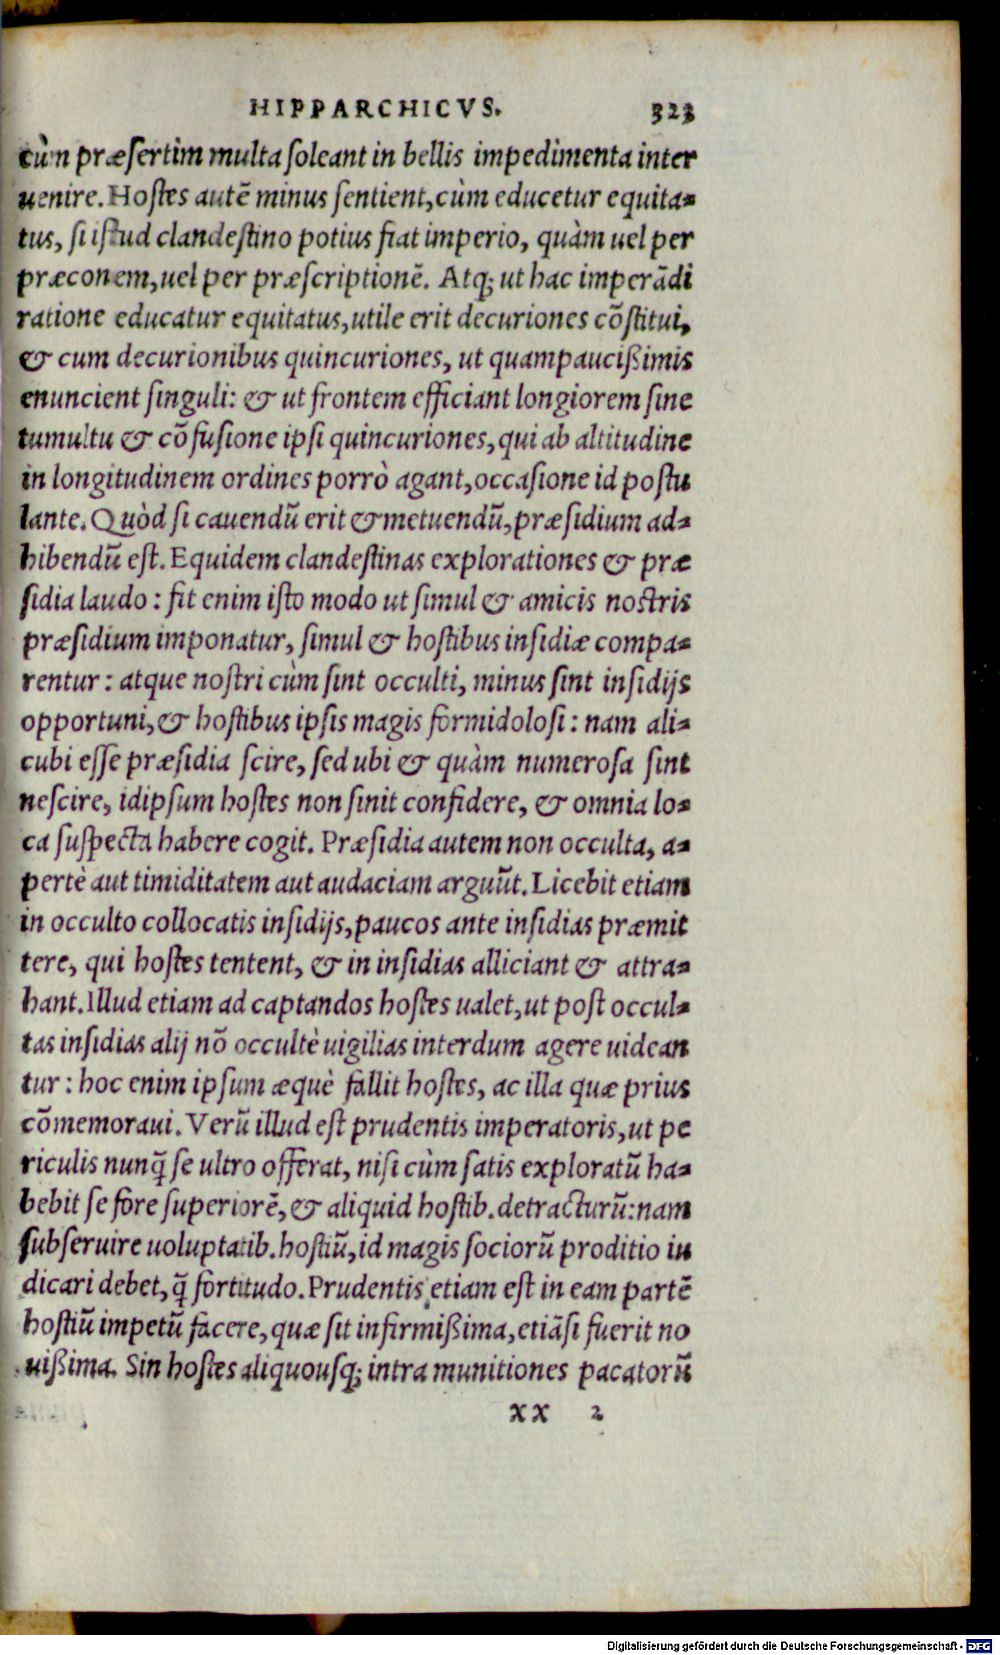 HIPPARCHICVS. 323
cùm præsertim multa soleant in bellis impedimenta inter
uenire. Hostes autē minus sentient, cùm educetur equita-
tus, si istud clandestino potius fiat imperio, quàm uel per
præconem, uel per præscriptionē. Atq; ut hac imperādi
ratione educatur equitatus, utile erit decuriones cōstitui,
& cum decurionibus quincuriones, ut quampaucißimis
enuncient singuli: & ut frontem efficiant longiorem sine
tumultu & cōfusione ipsi quincuriones, qui ab altitudine
in longitudinem ordines porrò agant, occasione id postu
lante. Quòd si cauendū erit & metuendū, præsidium ad-
hibendū est. Equidem clandestinas explorationes & præ
sidia laudo: fit enim isto modo ut simul & amicis nostris
præsidium imponatur, simul & hostibus insidiæ compa-
rentur: atque nostri cùm sint occulti, minus sint insidijs
opportuni, & hostibus ipsis magis formidolosi: nam ali-
cubi esse præsidia scire, sed ubi & quàm numerosa sint
nescire, idipsum hostes non sinit confidere, & omnia lo-
ca suspecta habere cogit. Præsidia autem non occulta, a-
pertè aut timiditatem aut audaciam arguūt. Licebit etiam
in occulto collocatis insidijs, paucos ante insidias præmit
tere, qui hostes tentent, & in insidias alliciant & attra-
hant. Illud etiam ad captandos hostes ualet, ut post occul-
tas insidias alij nō occultè uigilias interdum agere uidean
tur: hoc enim ipsum æquè fallit hostes, ac illa quæ prius
cōmemoraui. Verū illud est prudentis imperatoris, ut pe
riculis nunq̄ se ultro offerat, nisi cùm satis exploratū ha-
bebit se fore superiorē, & aliquid hostib. detracturū: nam
subseruire uoluptatib. hostiū, id magis sociorū proditio iu
dicari debet, q̄ fortitudo. Prudentis etiam est in eam partē
hostiū impetū facere, quæ sit infirmißima, etiāsi fuerit no
uißima. Sin hostes aliquousq; intra munitiones pacatorū
xx 2
Digitalisierung gefördert durch die Deutsche Forschungsgemeinschaft - DFG